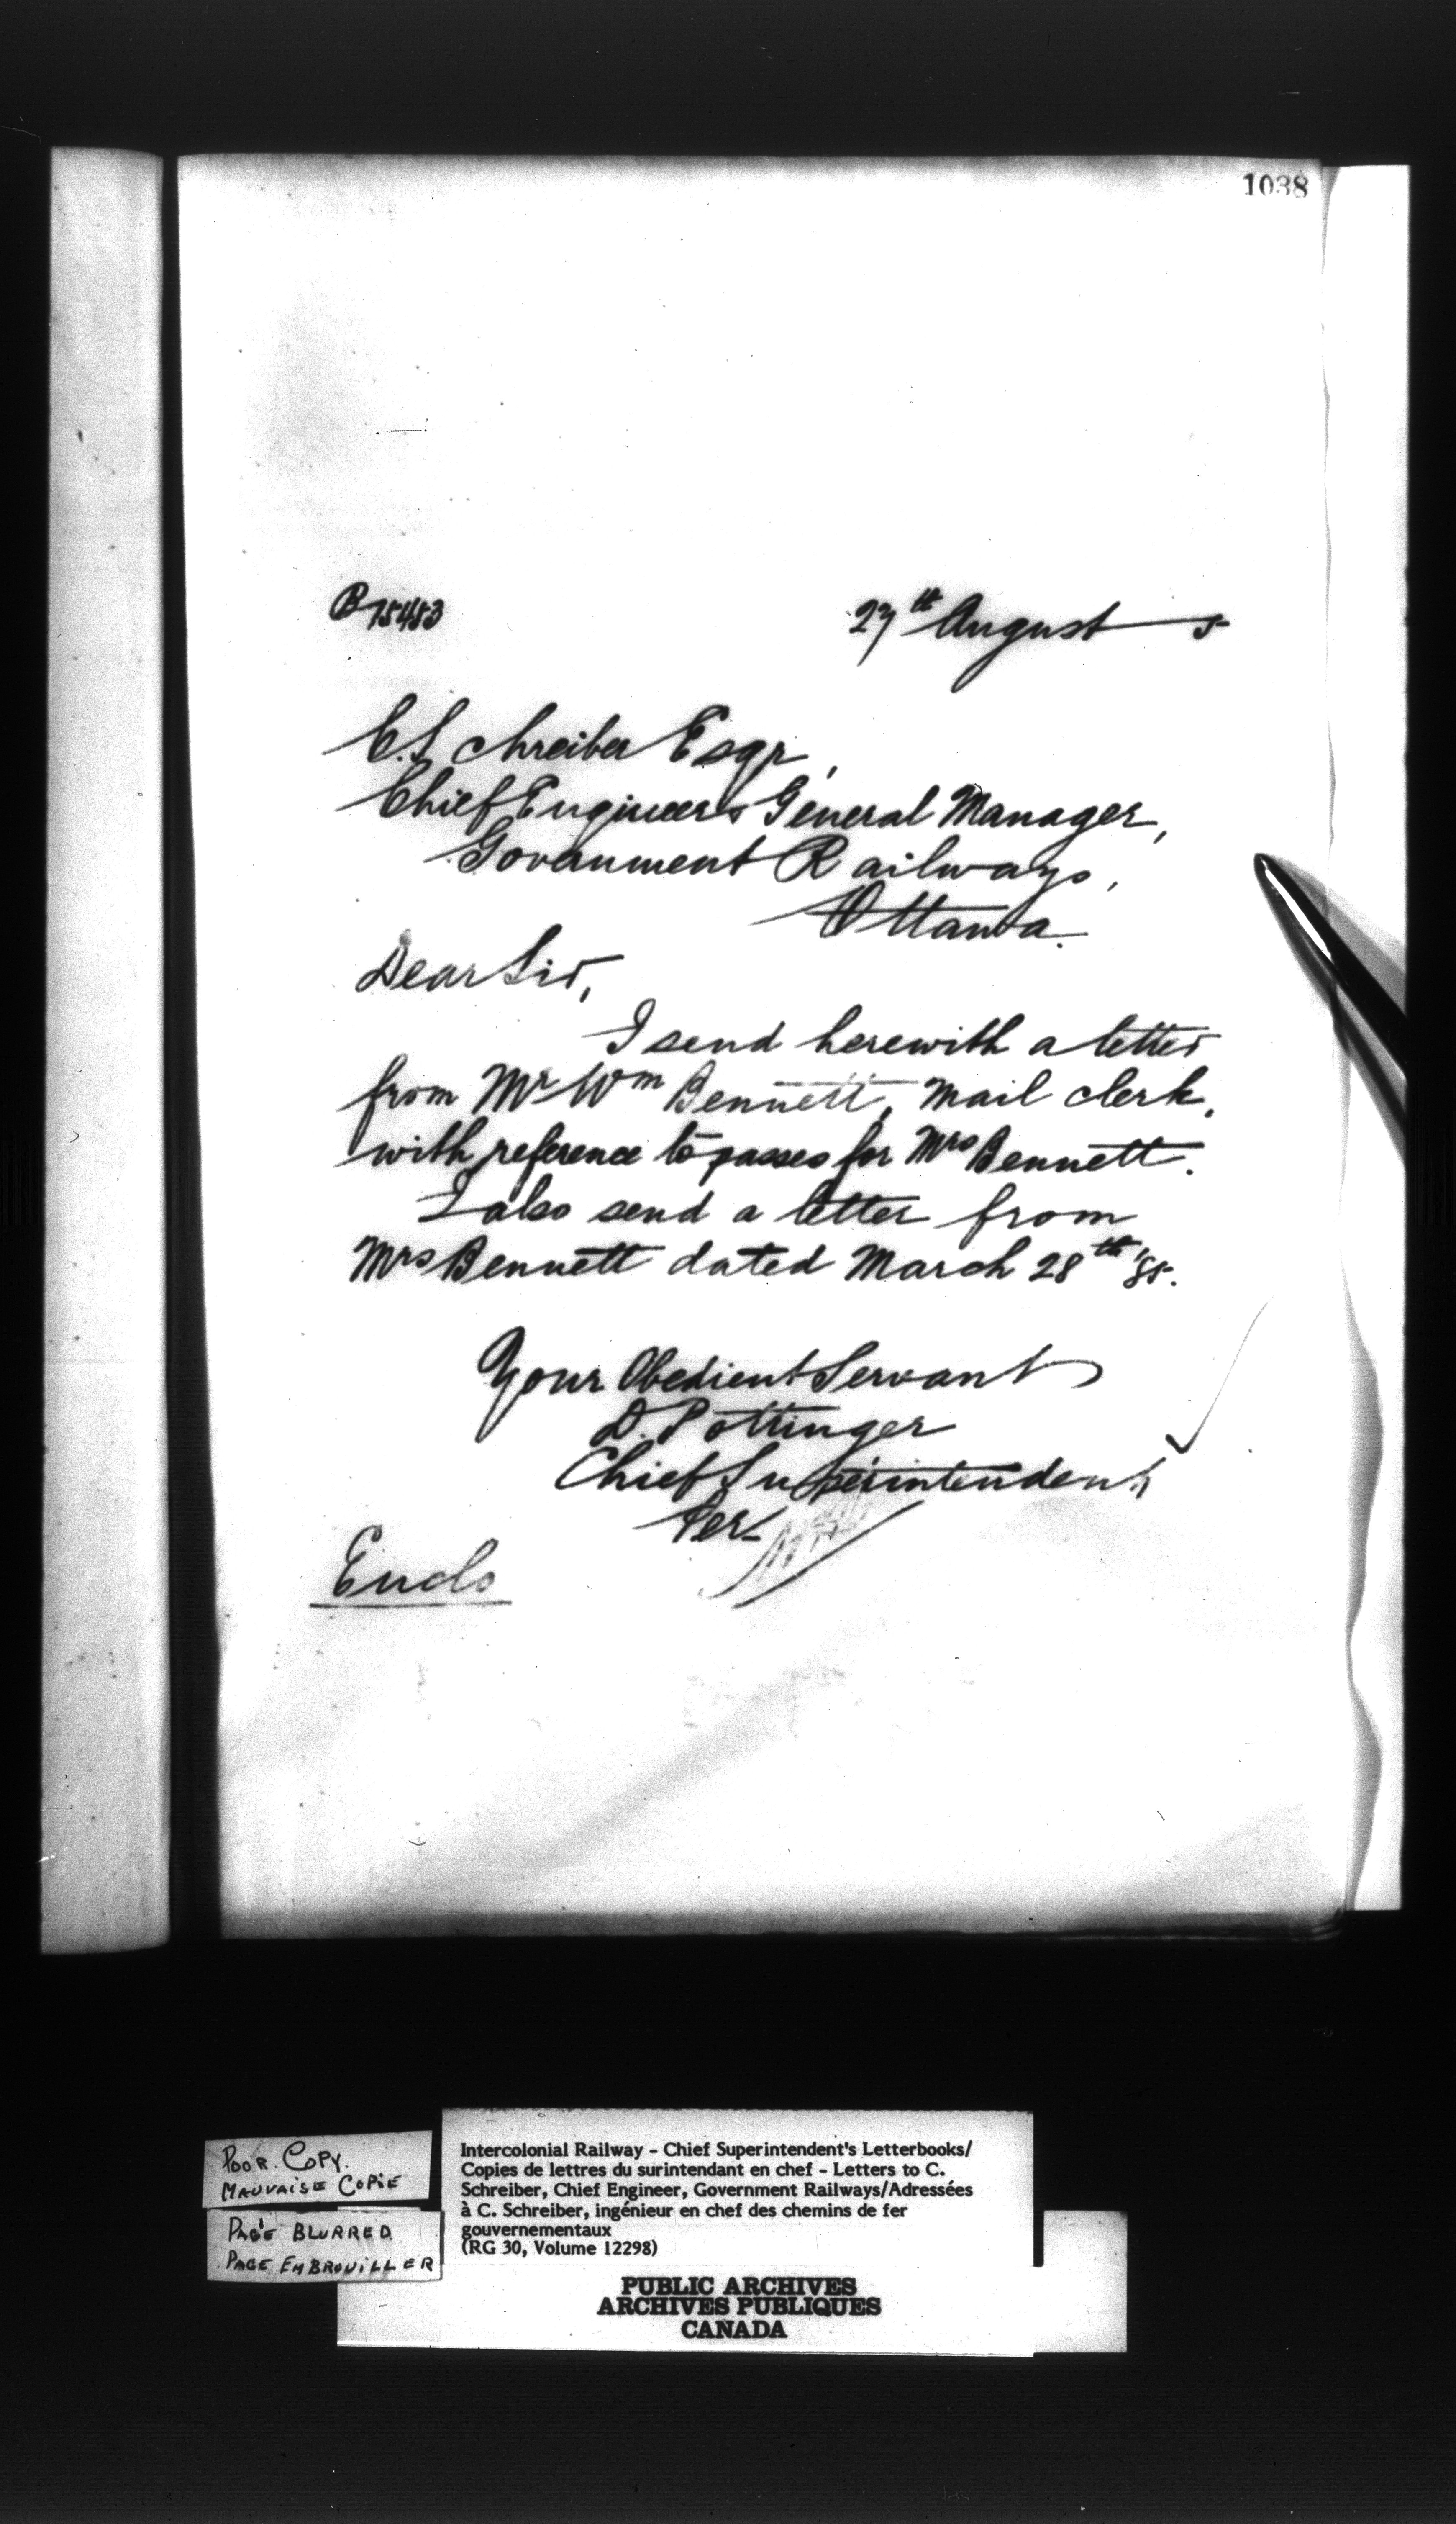 1038
B 15453
27th August 5
C. Schreiber Esqr,
Chief Engineer & General Manager,
Government Railways,
Ottawa.
Dear Sir,
I send herewith a letter
from Mr Wm Bennett, Mail clerk,
with reference to passes for Mrs Bennett.
I also send a letter from
Mrs Bennett dated March 28th '85.
Your Obedient Servant
D. Pottinger
Chief Superintendent
Per
Enclo
POOR COPY.
MAUVAISE COPIE
PAGE BLURRED
PAGE EMBROUILLER
Intercolonial Railway - Chief Superintendent's Letterbooks/
Copies de lettres du surintendant en chef - Letters to C.
Schreiber, Chief Engineer, Government Railways/Adressées
à C. Schreiber, ingénieur en chef des chemins de fer
gouvernementaux
(RG 30, Volume 12298)
PUBLIC ARCHIVES
ARCHIVES PUBLIQUES
CANADA